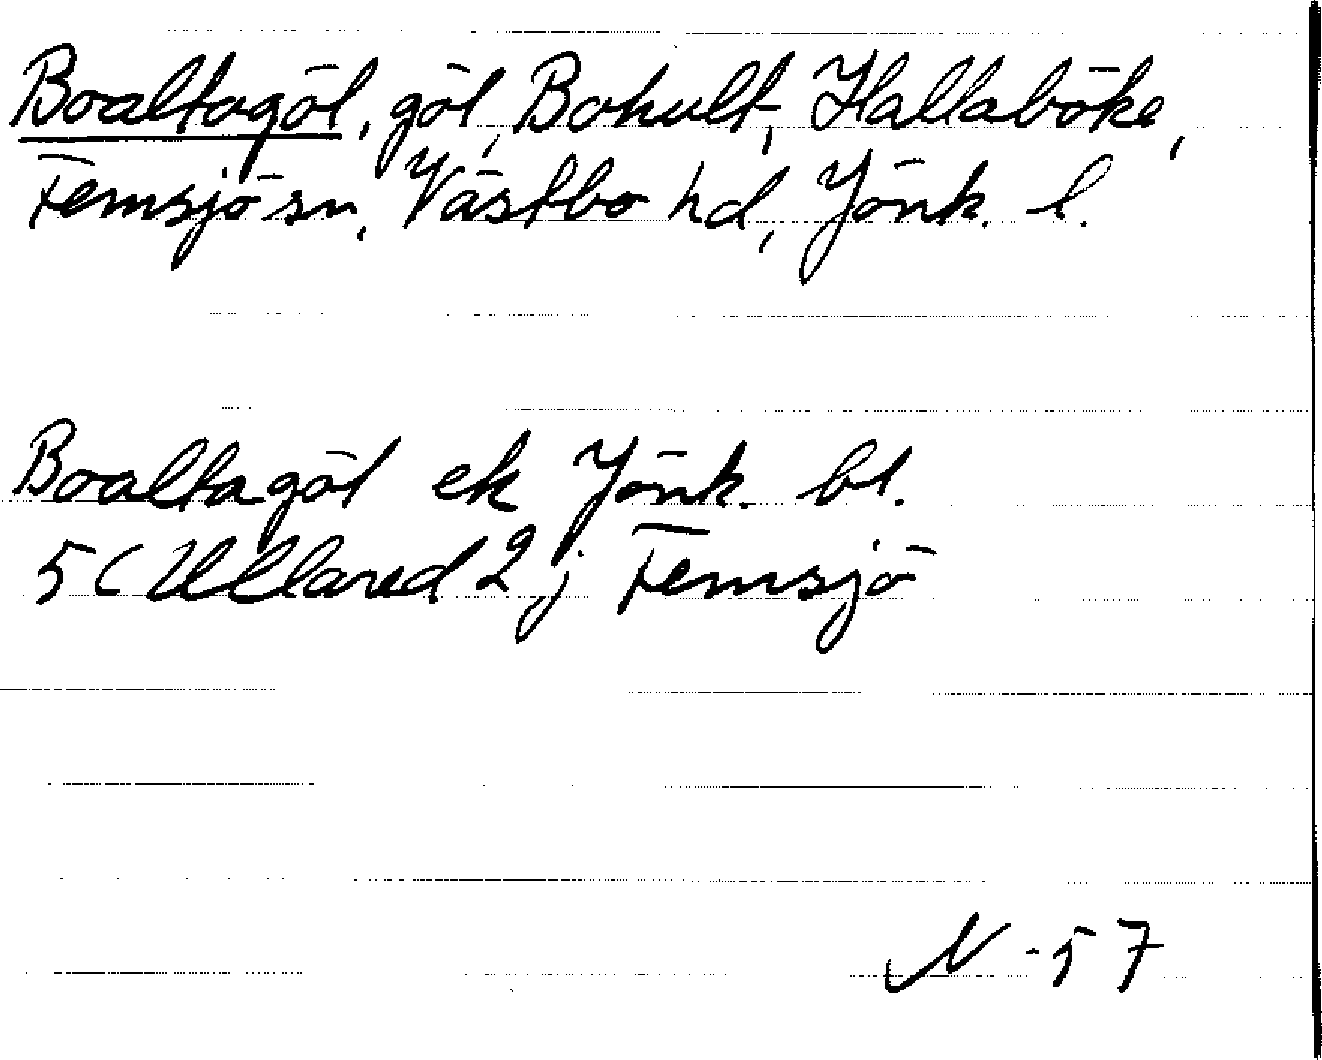 Boaltagöl, göl, Bohult, Hallaböke,
Femsjö sn, Västbo hd, Jönk. l.
Boaltagöl ek Jönk. bl.
5 C Ullared 2 j Femsjö
N -57